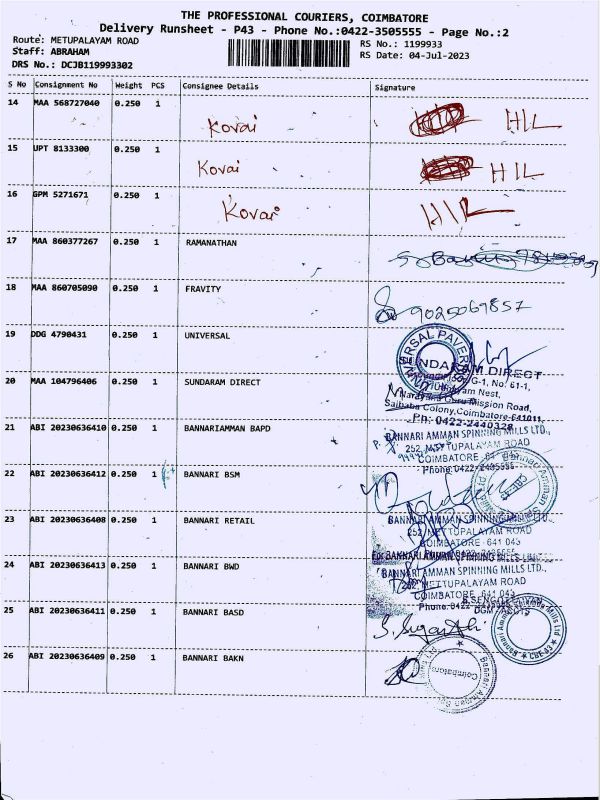 THE PROFESSIONAL COURIERS, COIMBATORE
Delivery Runsheet - P43 - Phone No.:0422-3505555 - Page No.:2
Route: METUPALAYAM ROAD
RS No.: 1199933
Staff: ABRAHAM
RS Date: 04-Jul-2023
DRS No.: DCJB119993302
S No Consignment No Weight PCS Consignee Details Signature
14 MAA 568727040 0.250 1 Kovai HIL
15 UPT 8133300 0.250 1 Kovai HIL
16 GPM 5271671 0.250 1 Kovai HIL
17 MAA 860377267 0.250 1 RAMANATHAN
18 MAA 860705090 0.250 1 FRAVITY 9025069857
19 DDG 4790431 0.250 1 UNIVERSAL
20 MAA 104796406 0.250 1 SUNDARAM DIRECT
Saibaba Colony, Coimbatore-641011.
Ph: 0422-2440328
21 ABI 20230636410 0.250 1 BANNARIAMMAN BAPD
BANNARI AMMAN SPINNING MILLS LTD.,
252, METTUPALAYAM ROAD
COIMBATORE - 641 043
Phone: 0422-2435555
22 ABI 20230636412 0.250 1 BANNARI BSM
23 ABI 20230636408 0.250 1 BANNARI RETAIL
BANNARI AMMAN SPINNING MILLS LTD.,
252, METTUPALAYAM ROAD
COIMBATORE - 641 043
For BANNARI AMMAN SPINNING MILLS LTD.,
24 ABI 20230636413 0.250 1 BANNARI BWD
BANNARI AMMAN SPINNING MILLS LTD.,
252, METTUPALAYAM ROAD
COIMBATORE - 641 043
25 ABI 20230636411 0.250 1 BANNARI BASD
26 ABI 20230636409 0.250 1 BANNARI BAKN
Coimbatore